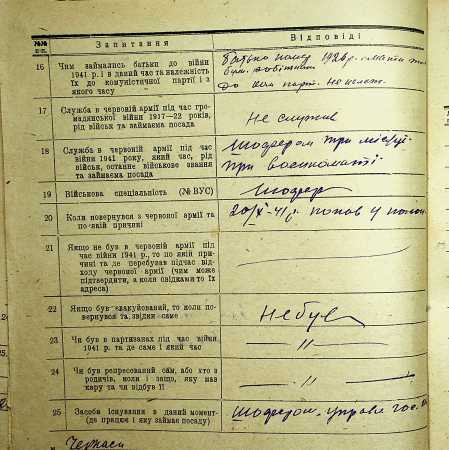 №№ п.п.
Запитання
Відповіді
16
Чим займались батьки до війни
1941 р. і в даний час та належність
їх до комуністичної партії і з
якого часу
Батько помер 1926 р. мати
були робітники
до ком парт. не належ.
17
Служба в червоній армії під час гро-
мадянської війни 1917—22 років,
рід військ та займаєма посада
Не служив
18
Служба в червоній армії під час
війни 1941 року, який час, рід
військ, останнє військове звання
та займаєма посада
Шофером при
при воєнкоматі
19
Військова спеціальність (№ ВУС)
Шофер
20
Коли повернувся з червоної армії та
по якій причині
20/X-41 р. попав у полон
21
Якщо не був в червоній армії під
час війни 1941 р., то по якій при-
чині та де перебував підчас від-
ходу червоної армії (чим може
підтвердити, а коли свідками то їх
адреса)
22
Якщо був евакуйований, то коли по-
вернувся та звідки саме
Не був
23
Чи був в партизанах під час війни
1941 р. та де саме і який час
— „ —
24
Чи був репресований сам, або хто з
родичів, коли і защо, яку мав
кару та чи відбув її
— „ —
25
Засоби існування в даний момент-
(де працює і яку займає посаду)
Шофером, управл. гос.
м. Черкаси